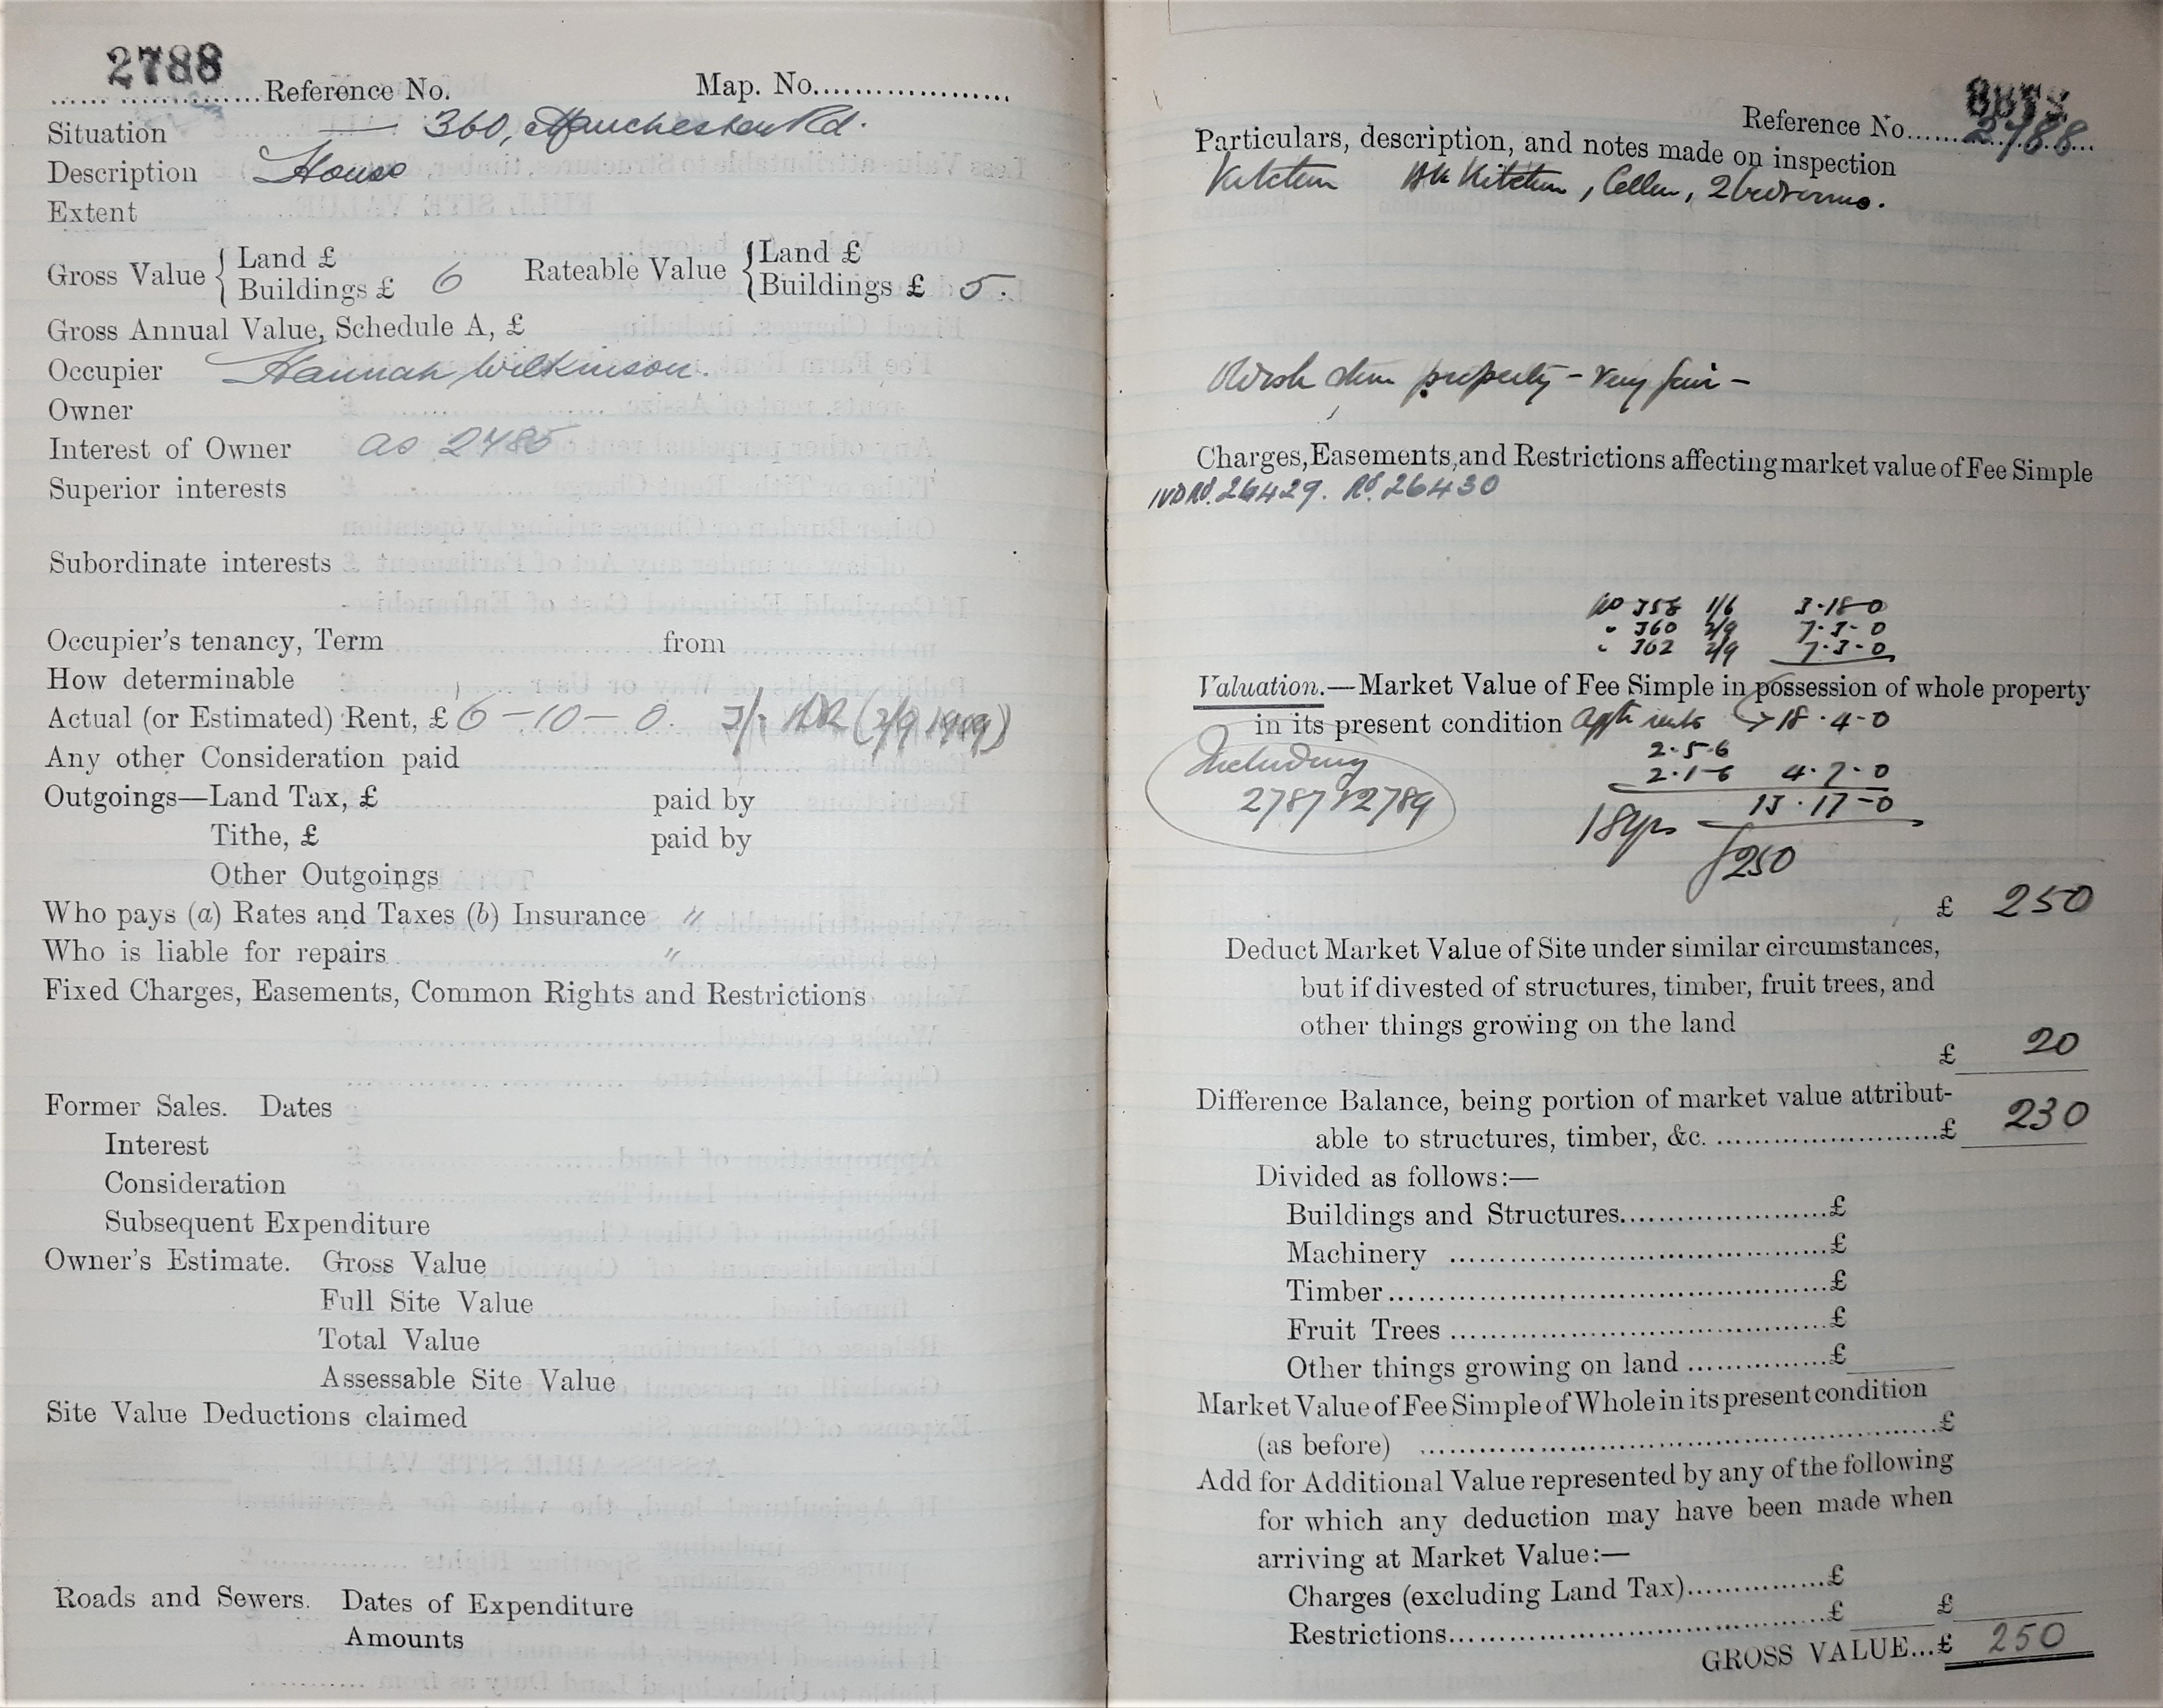 2788
Reference No. Map. No.
Situation 360, Manchester Rd.
Description House
Extent
Gross Value { Land £ Rateable Value { Land £
Buildings £ 6 Buildings £ 5.
Gross Annual Value, Schedule A, £
Occupier Hannah Wilkinson.
Owner
Interest of Owner as 2785
Superior interests
Subordinate interests
Occupier's tenancy, Term from
How determinable
Actual (or Estimated) Rent, £ 6-10-0. (2/9
Any other Consideration paid
Outgoings—Land Tax, £ paid by
Tithe, £ paid by
Other Outgoings
Who pays (a) Rates and Taxes (b) Insurance "
Who is liable for repairs "
Fixed Charges, Easements, Common Rights and Restrictions
Former Sales. Dates
Interest
Consideration
Subsequent Expenditure
Owner's Estimate. Gross Value
Full Site Value
Total Value
Assessable Site Value
Site Value Deductions claimed
Roads and Sewers. Dates of Expenditure
Amounts
Reference No. 2788
Particulars, description, and notes made on inspection
Kitchen Bk Kitchen, Cellar, 2 bedrooms.
property - very fair -
Charges, Easements, and Restrictions affecting market value of Fee Simple
26429. No. 26430
No 358 1/6 3-18-0
" 360 2/9 7-3-0
" 362 2/9 7-3-0
Valuation.—Market Value of Fee Simple in possession of whole property
in its present condition rents 18-4-0
2-5-6
2-1-6 4-7-0
13-17-0
18 yrs
£250
Including
2787 & 2789
£ 250
Deduct Market Value of Site under similar circumstances,
but if divested of structures, timber, fruit trees, and
other things growing on the land
£ 20
Difference Balance, being portion of market value attribut-
able to structures, timber, &c. £ 230
Divided as follows:—
Buildings and Structures £
Machinery £
Timber £
Fruit Trees £
Other things growing on land £
Market Value of Fee Simple of Whole in its present condition
(as before) £
Add for Additional Value represented by any of the following
for which any deduction may have been made when
arriving at Market Value:—
Charges (excluding Land Tax) £
Restrictions £ £
GROSS VALUE...£ 250